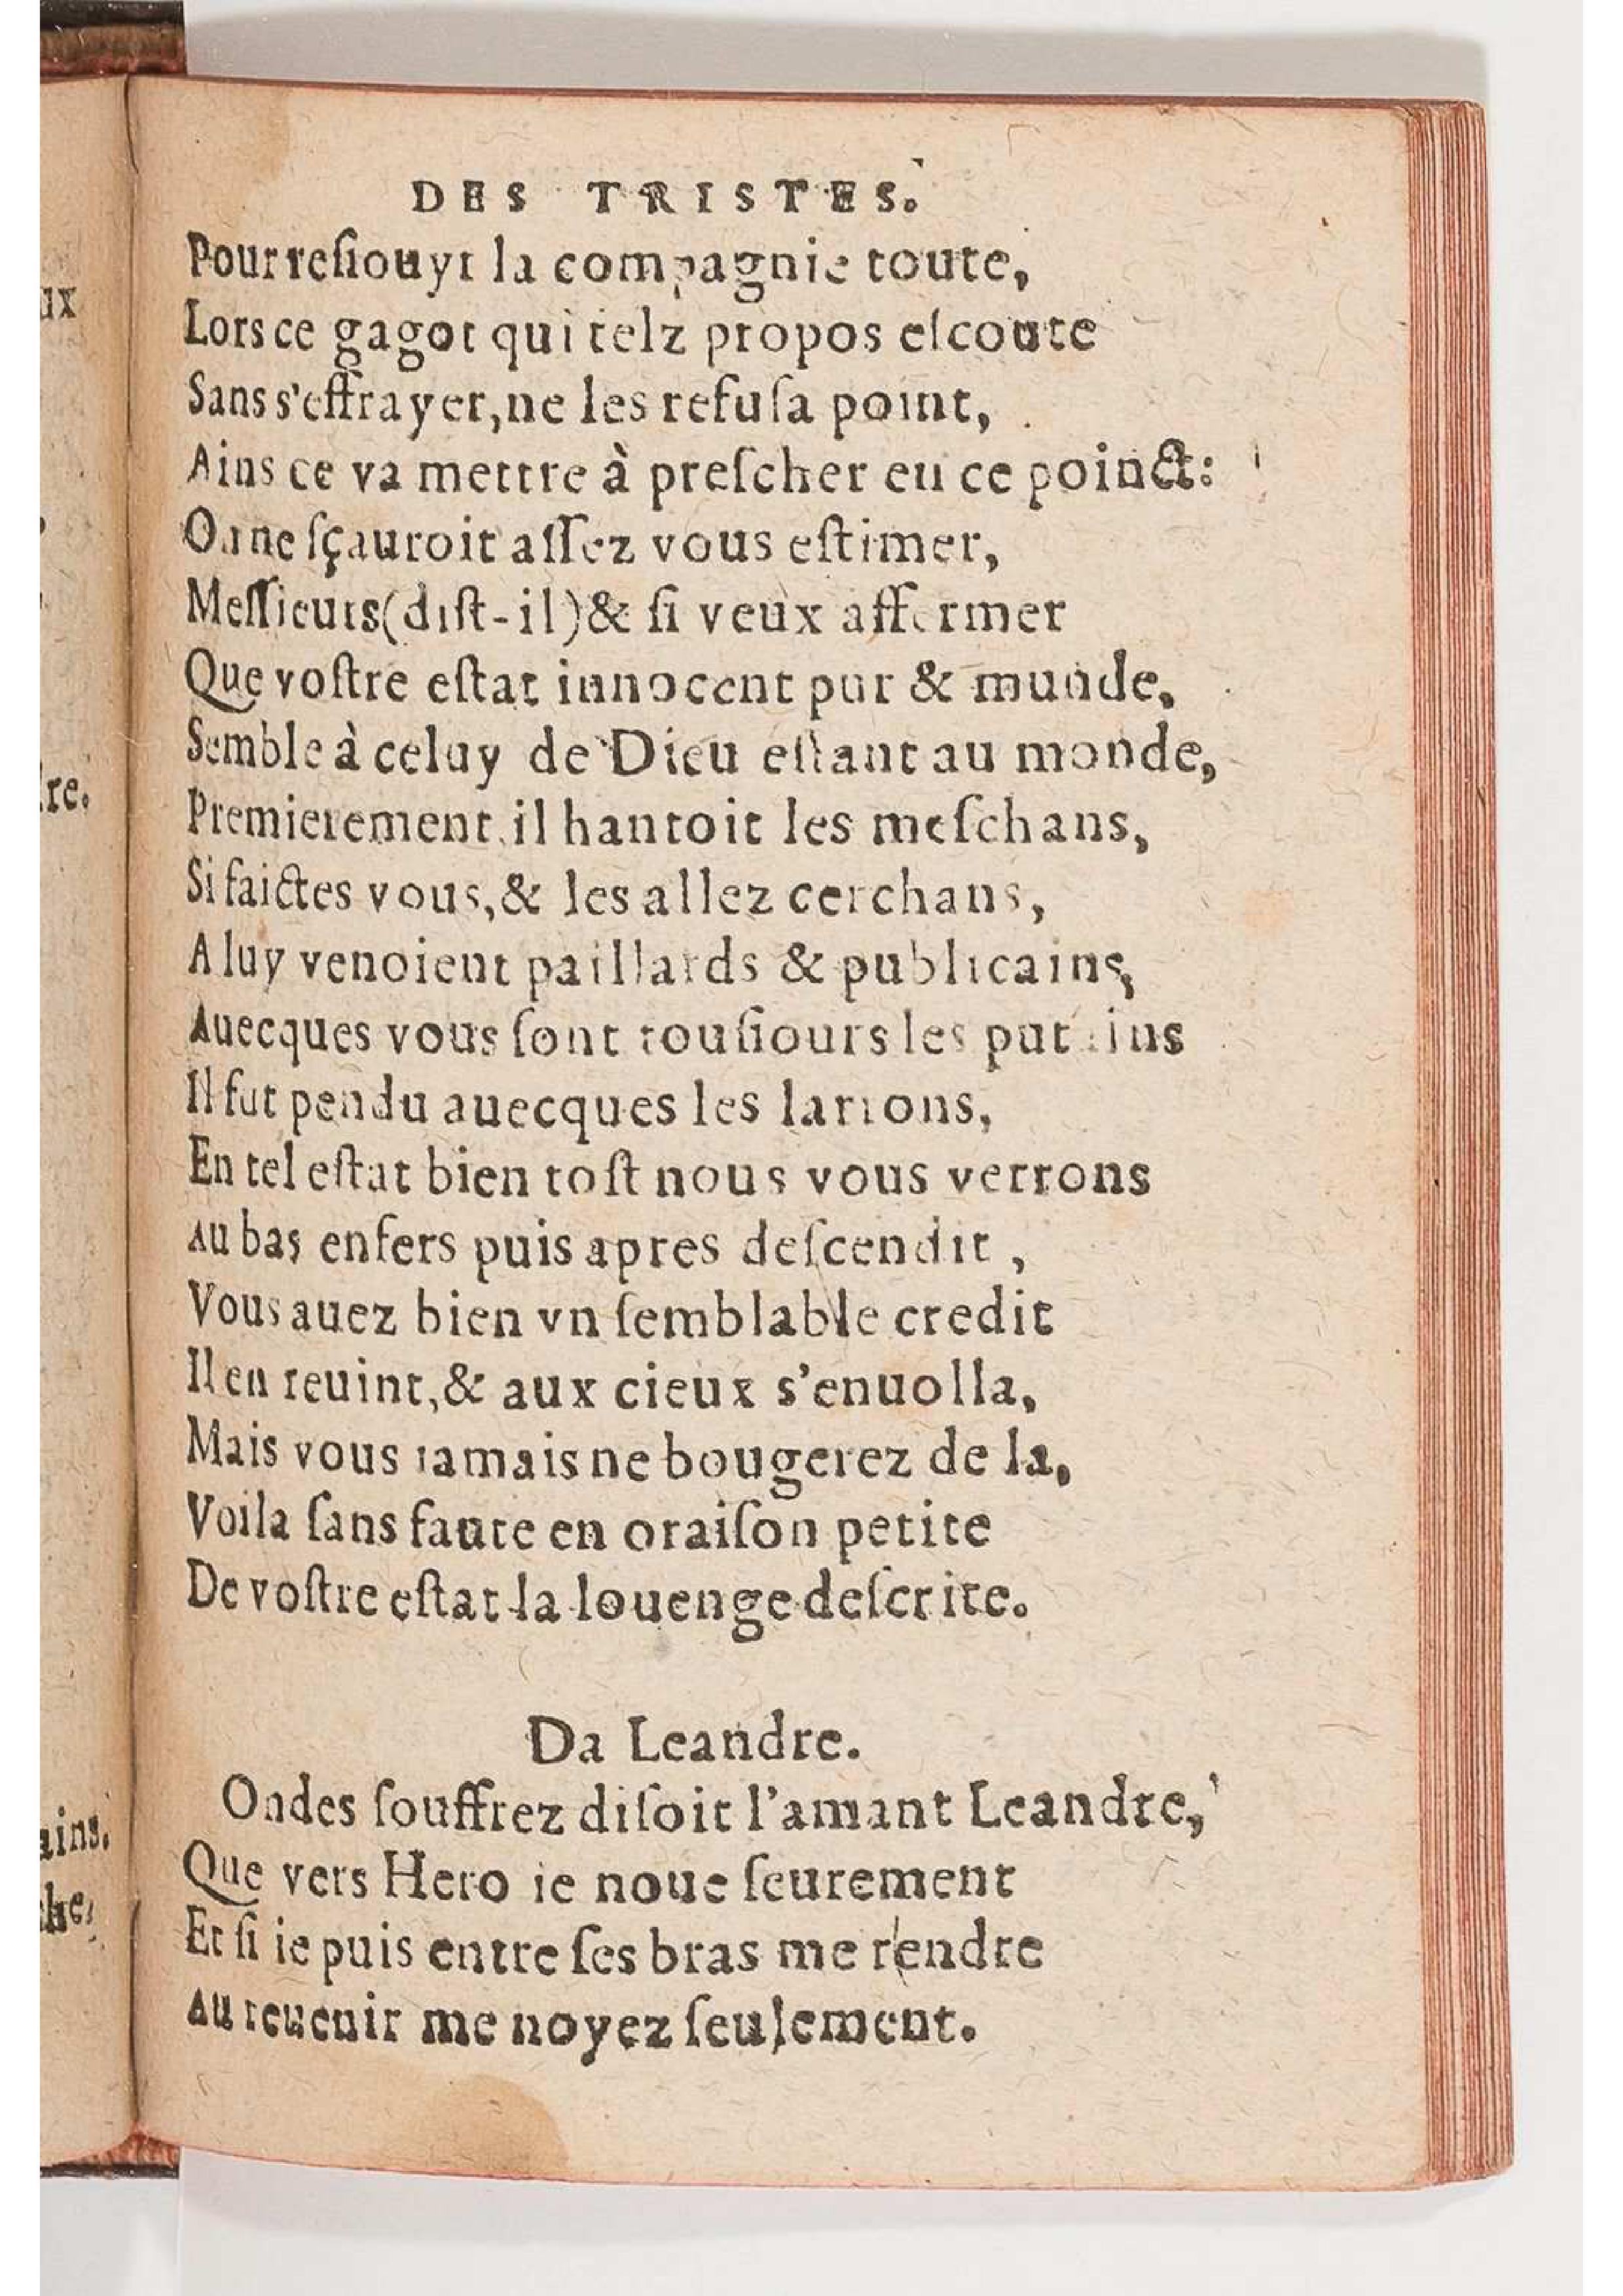 DES TRISTES.
Pour resiouyr la compagnie toute,
Lors ce gagot qui telz propos eſcoute
Sans s'effrayer, ne les refuſa point,
Ains ce va mettre à preſcher eu ce poinct:
On ne ſçauroit aſſez vous eſtimer,
Meſſieurs (diſt-il) & ſi veux affermer
Que voſtre eſtat innocent pur & munde,
Semble à celuy de Dieu eſtant au monde,
Premierement, il hantoit les meſchans,
Si faictes vous, & les allez cerchans,
A luy venoient paillards & publicains,
Auecques vous ſont touſiours les putains
Il fut pendu auecques les larrons,
En tel eſtat bien toſt nous vous verrons
Au bas enfers puis apres deſcendit,
Vous auez bien vn ſemblable credit
Il en reuint, & aux cieux s'enuolla,
Mais vous iamais ne bougerez de la,
Voila ſans faute en oraiſon petite
De voſtre eſtat la louenge deſcrite.
Da Leandre.
Ondes ſouffrez diſoit l'amant Leandre,
Que vers Hero ie noue ſeurement
Et ſi ie puis entre ſes bras me rendre
Au reuenir me noyez ſeulement.
ux
re.
ains.